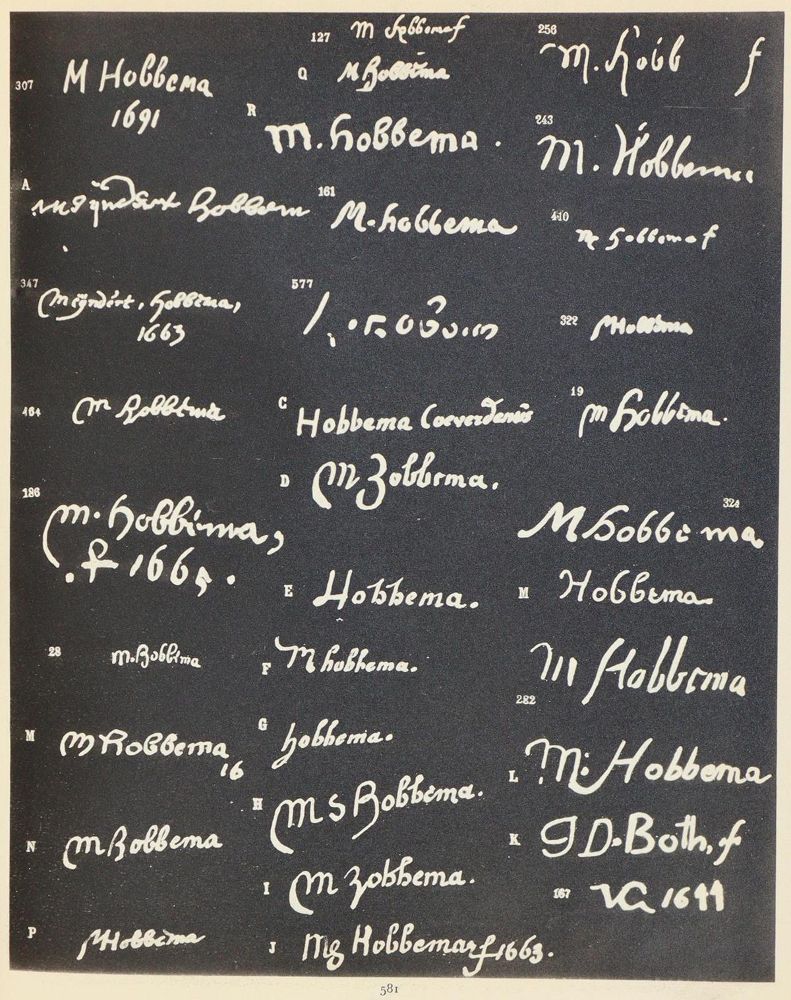 307 M Hobbema
1691
A Meijndert Hobbem
347 Meijndert, hobbema,
1663
464 m hobbema
186 m. hobbema,
. f 1665.
28 m. Hobbema
M m hobbema
16
N m hobbema
P MHobbema
127 M hobbema f
Q M Hobbema
R m. hobbema.
161 M. hobbema
577
C Hobbema Coeverdenus
D M hobbema.
E Hobbema.
F M hobbema.
G hobbema.
H M S Hobbema.
I m hobbema.
J Mg Hobbema f 1663.
256 m. hobb f
243 M. Hobbema
410 m hobbema f
322 MHobbema
19 m hobbema.
324 M hobbe ma
M Hobbema
M Hobbema
282
L M: Hobbema
K J D. Both, f
167 VG 1644
581